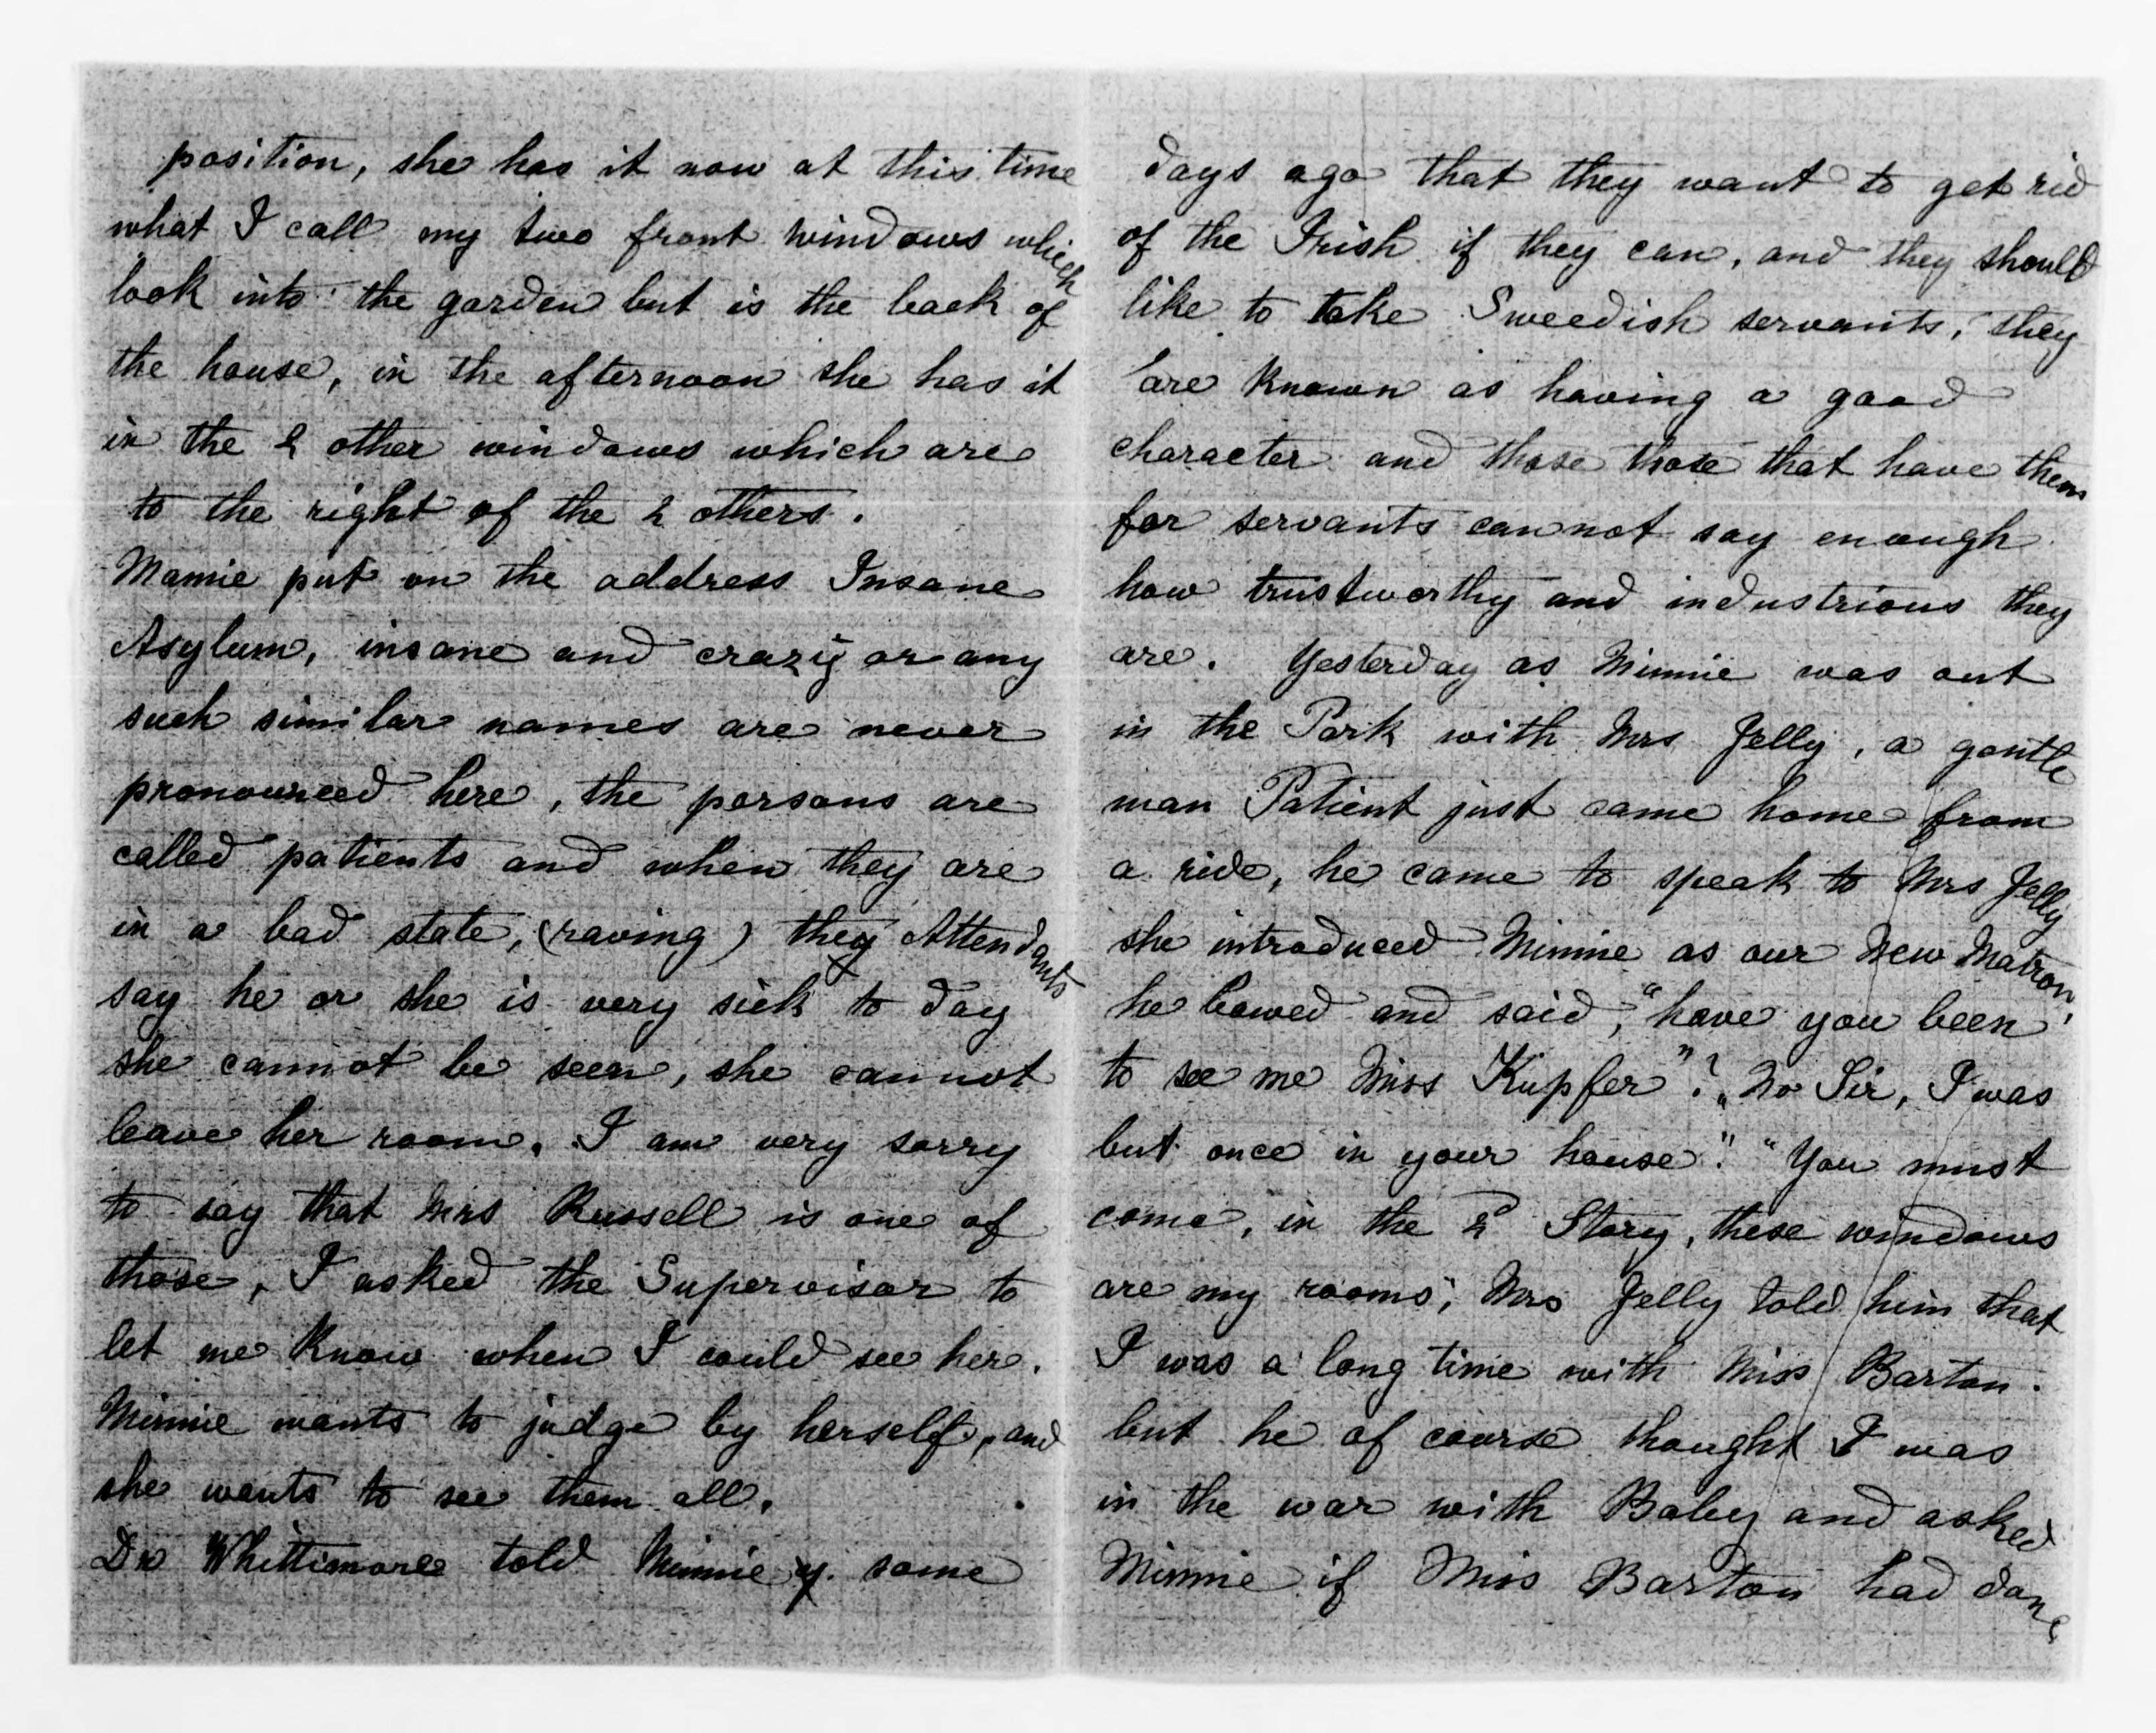 position, she has it now at this time
what I call my two front windows which
look into the garden but is the back of
the house, in the afternoon she has it
in the 2 other windows which are
to the right of the 2 others.
Mamie put on the address Insane
Asylum, insane and crazy or any
such similar names are never
pronounced here, the persons are
called patients and when they are
in a bad state, (raving) they Attendants
say he or she is very sick to day
she cannot be seen, she cannot
leave her room. I am very sorry
to say that Mrs Russell is one of
those, I asked the Supervisor to
let me know when I could see her.
Minnie wants to judge by herself, and
she wants to see them all.
Dr Whittimore told Minnie some
days ago that they want to get rid
of the Irish if they can, and they should
like to take Sweedish servants, they
are known as having a good
character and those those that have them
for servants cannot say enough
how trustworthy and industrious they
are. Yesterday as Minnie was out
in the Park with Mrs Jelly, a gentle
man Patient just came home from
a ride, he came to speak to Mrs Jelly
she introduced Minnie as our New Matron,
he bowed and said, "have you been
to see me Miss Kupfer"? "No Sir, I was
but once in your house." "You must
come, in the 2d Story, these windows
are my rooms", Mrs Jelly told him that
I was a long time with Miss Barton.
but he of course thought I was
in the war with Baby and asked
Minnie if Miss Barton had done